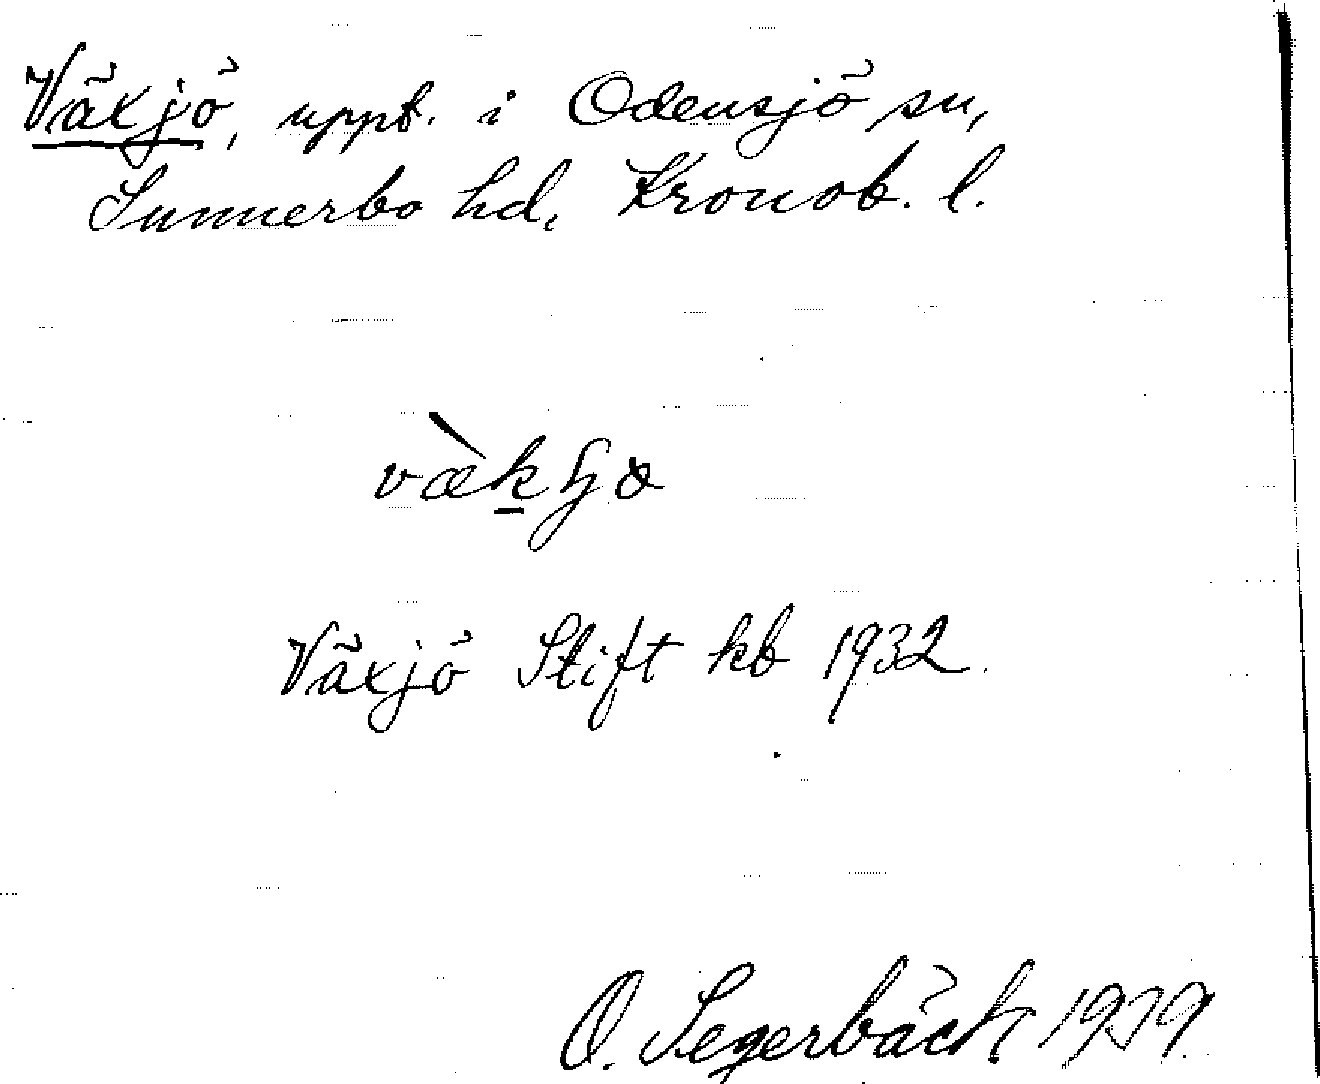 Växjö, uppt. i Odensjö sn,
Sunnerbo hd, Kronob. l.
Växjö Stift kb 1932.
O. Segerbäck 1939.